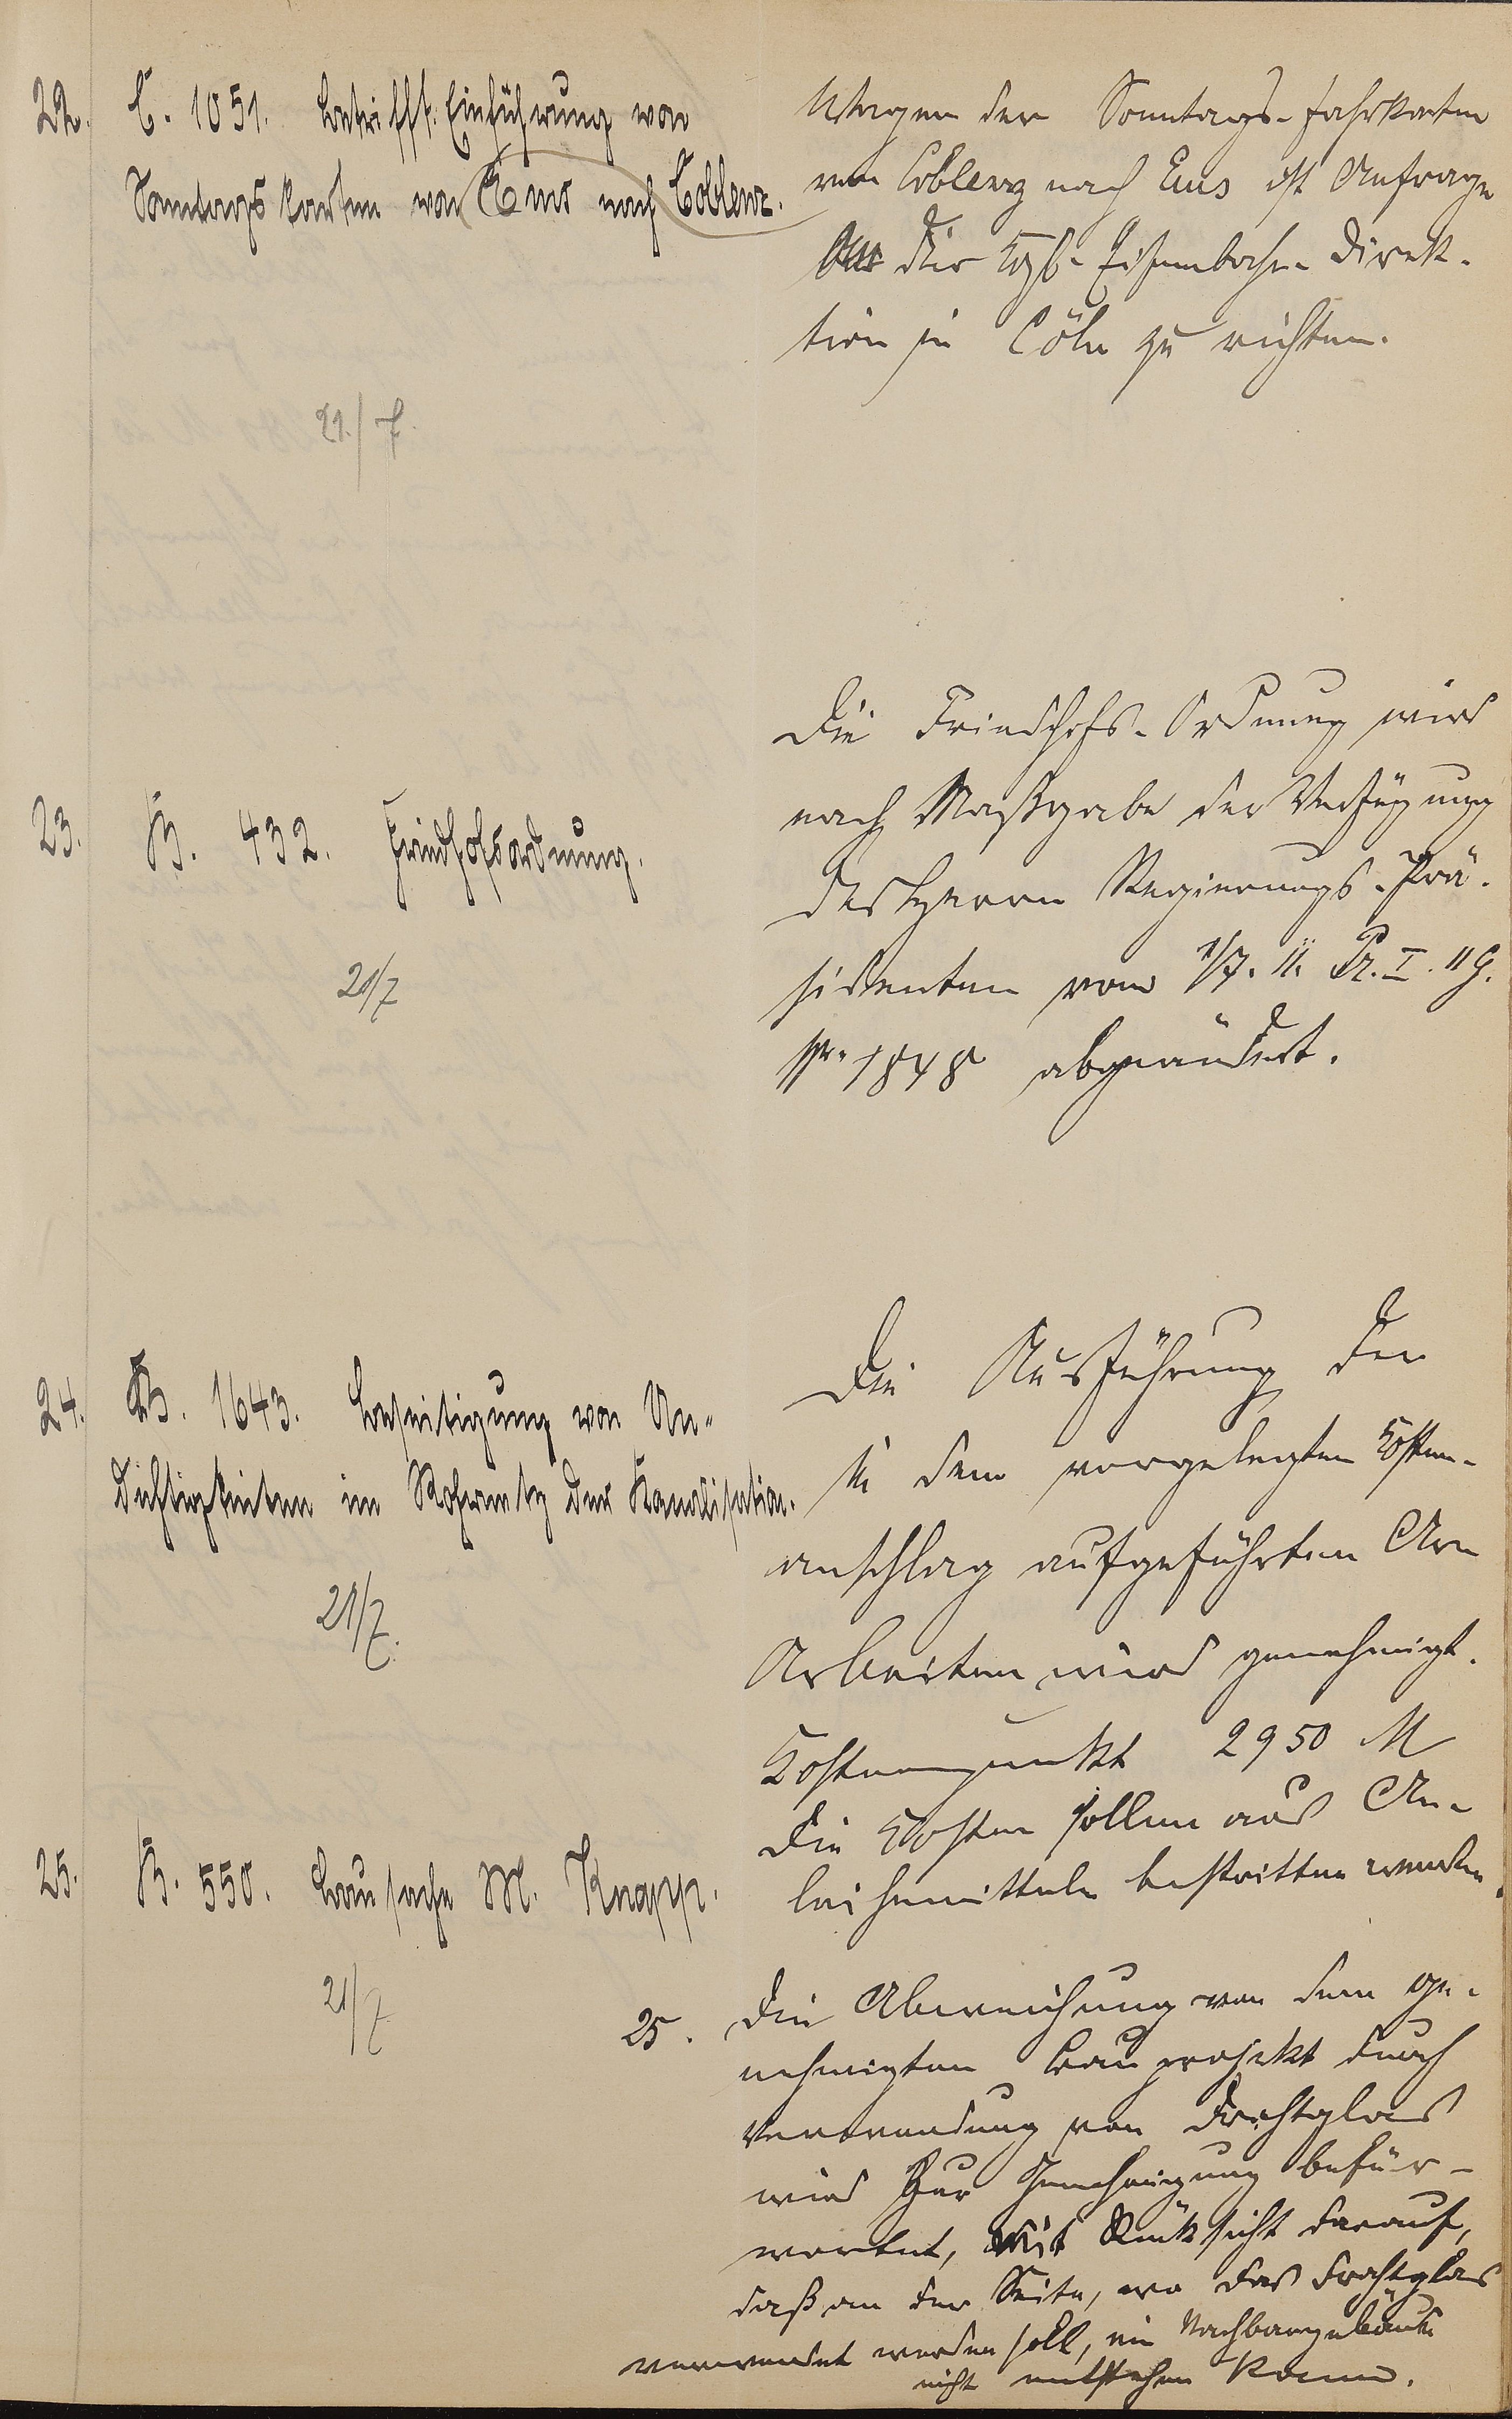 22. C. 1051. betrifft. Einführung von
Sonntagskarten von Ems nach Coblenz.
21./7.
Wegen der Sonntags-Fahrkarten
von Coblenz nach Ems ist Anfrage
an die Kgl. Eisenbahn-Direk-
tion in Cöln zu richten.
23. B. 432. Friedhofsordnung.
21/7
Die Friedhofs-Ordnung wird
nach Maßgabe der Verfügung
des Herrn Regierungs-Prä-
sidenten vom 1/7. 11. Pr. I. 11 G.
1848 abgeändert.
24. B. 1643. Beseitigung von Un-
dichtigkeiten im Rohrnetz der Kanalisation.
21/7.
Die Ausführung der
in dem vorgelegten Kosten-
anschlag aufgeführten
Arbeiten wird genehmigt.
Kostenpunkt 2950 M
Die Kosten sollen aus An-
leihemitteln bestritten werden.
25. B. 550. Bausache M. Knapp.
21/7.
25. Die Abweichung von dem ge-
nehmigten Bauprojekt durch
Verwendung von Drahtglas
wird zur Genehmigung befür-
wortet, mit Rücksicht darauf,
daß an der Seite, wo das Drahtglas
verwendet werden soll, ein Nachbargebäude
nicht entstehen kann.